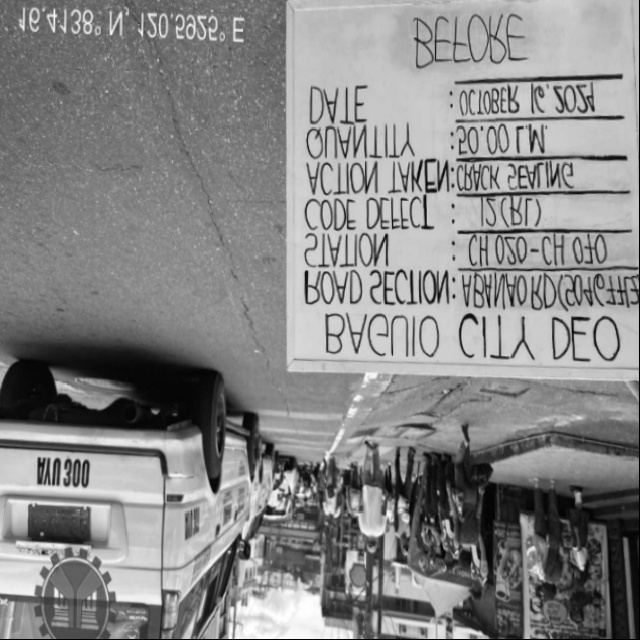 BAGUIO CITY DEO
ROAD SECTION: ABANAO RD (S04677LZ
STATION : CH 020-CH 070
CODE DEFECT : 12 (RL)
ACTION TAKEN: CRACK SEALING
QUANTITY : 50.00 L.M.
DATE : OCTOBER 16, 2024
BEFORE
16.4138° N, 120.5925° E
AYU 300